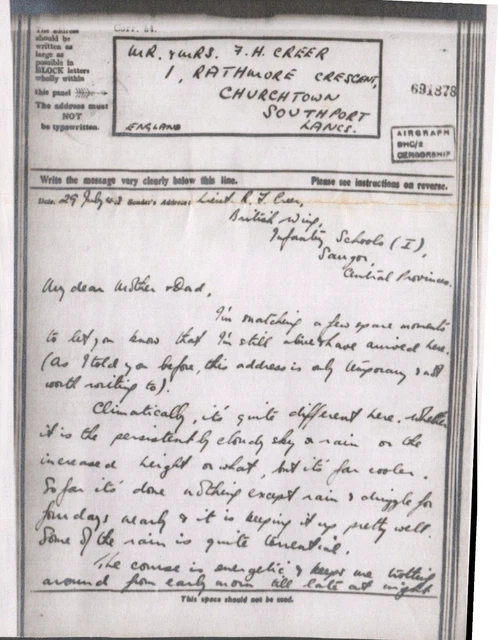 The address
should be
written as
large as
possible in
BLOCK letters
wholly within
this panel
The address must
NOT
be typewritten.
MR. & MRS. F. H. CREER
1, RATHMORE CRESCENT,
CHURCHTOWN
SOUTHPORT
LANCS.
ENGLAND
691878
AIRGRAPH
CENSORSHIP
Write the message very clearly below this line.
Please see instructions on reverse.
Date: 29 July 43 Sender's Address: Lieut. R. F. Creer,
British Wing,
Infantry Schools (I),
Saugor,
Central Provinces.
My dear Mother & Dad,
I'm snatching a few spare moments
to let you know that I'm still alive & have arrived here.
(As I told you before, this address is only temporary & not
worth writing to).
Climatically, it's quite different here. Whether
it is the persistently cloudy sky or rain or the
increased height or what, but it's far cooler.
So far it's done nothing except rain & drizzle for
four days nearly & it is keeping it up pretty well.
Some of the rain is quite torrential.
The course is energetic & keeps me trotting
around from early morn till late at night
This space should not be used.